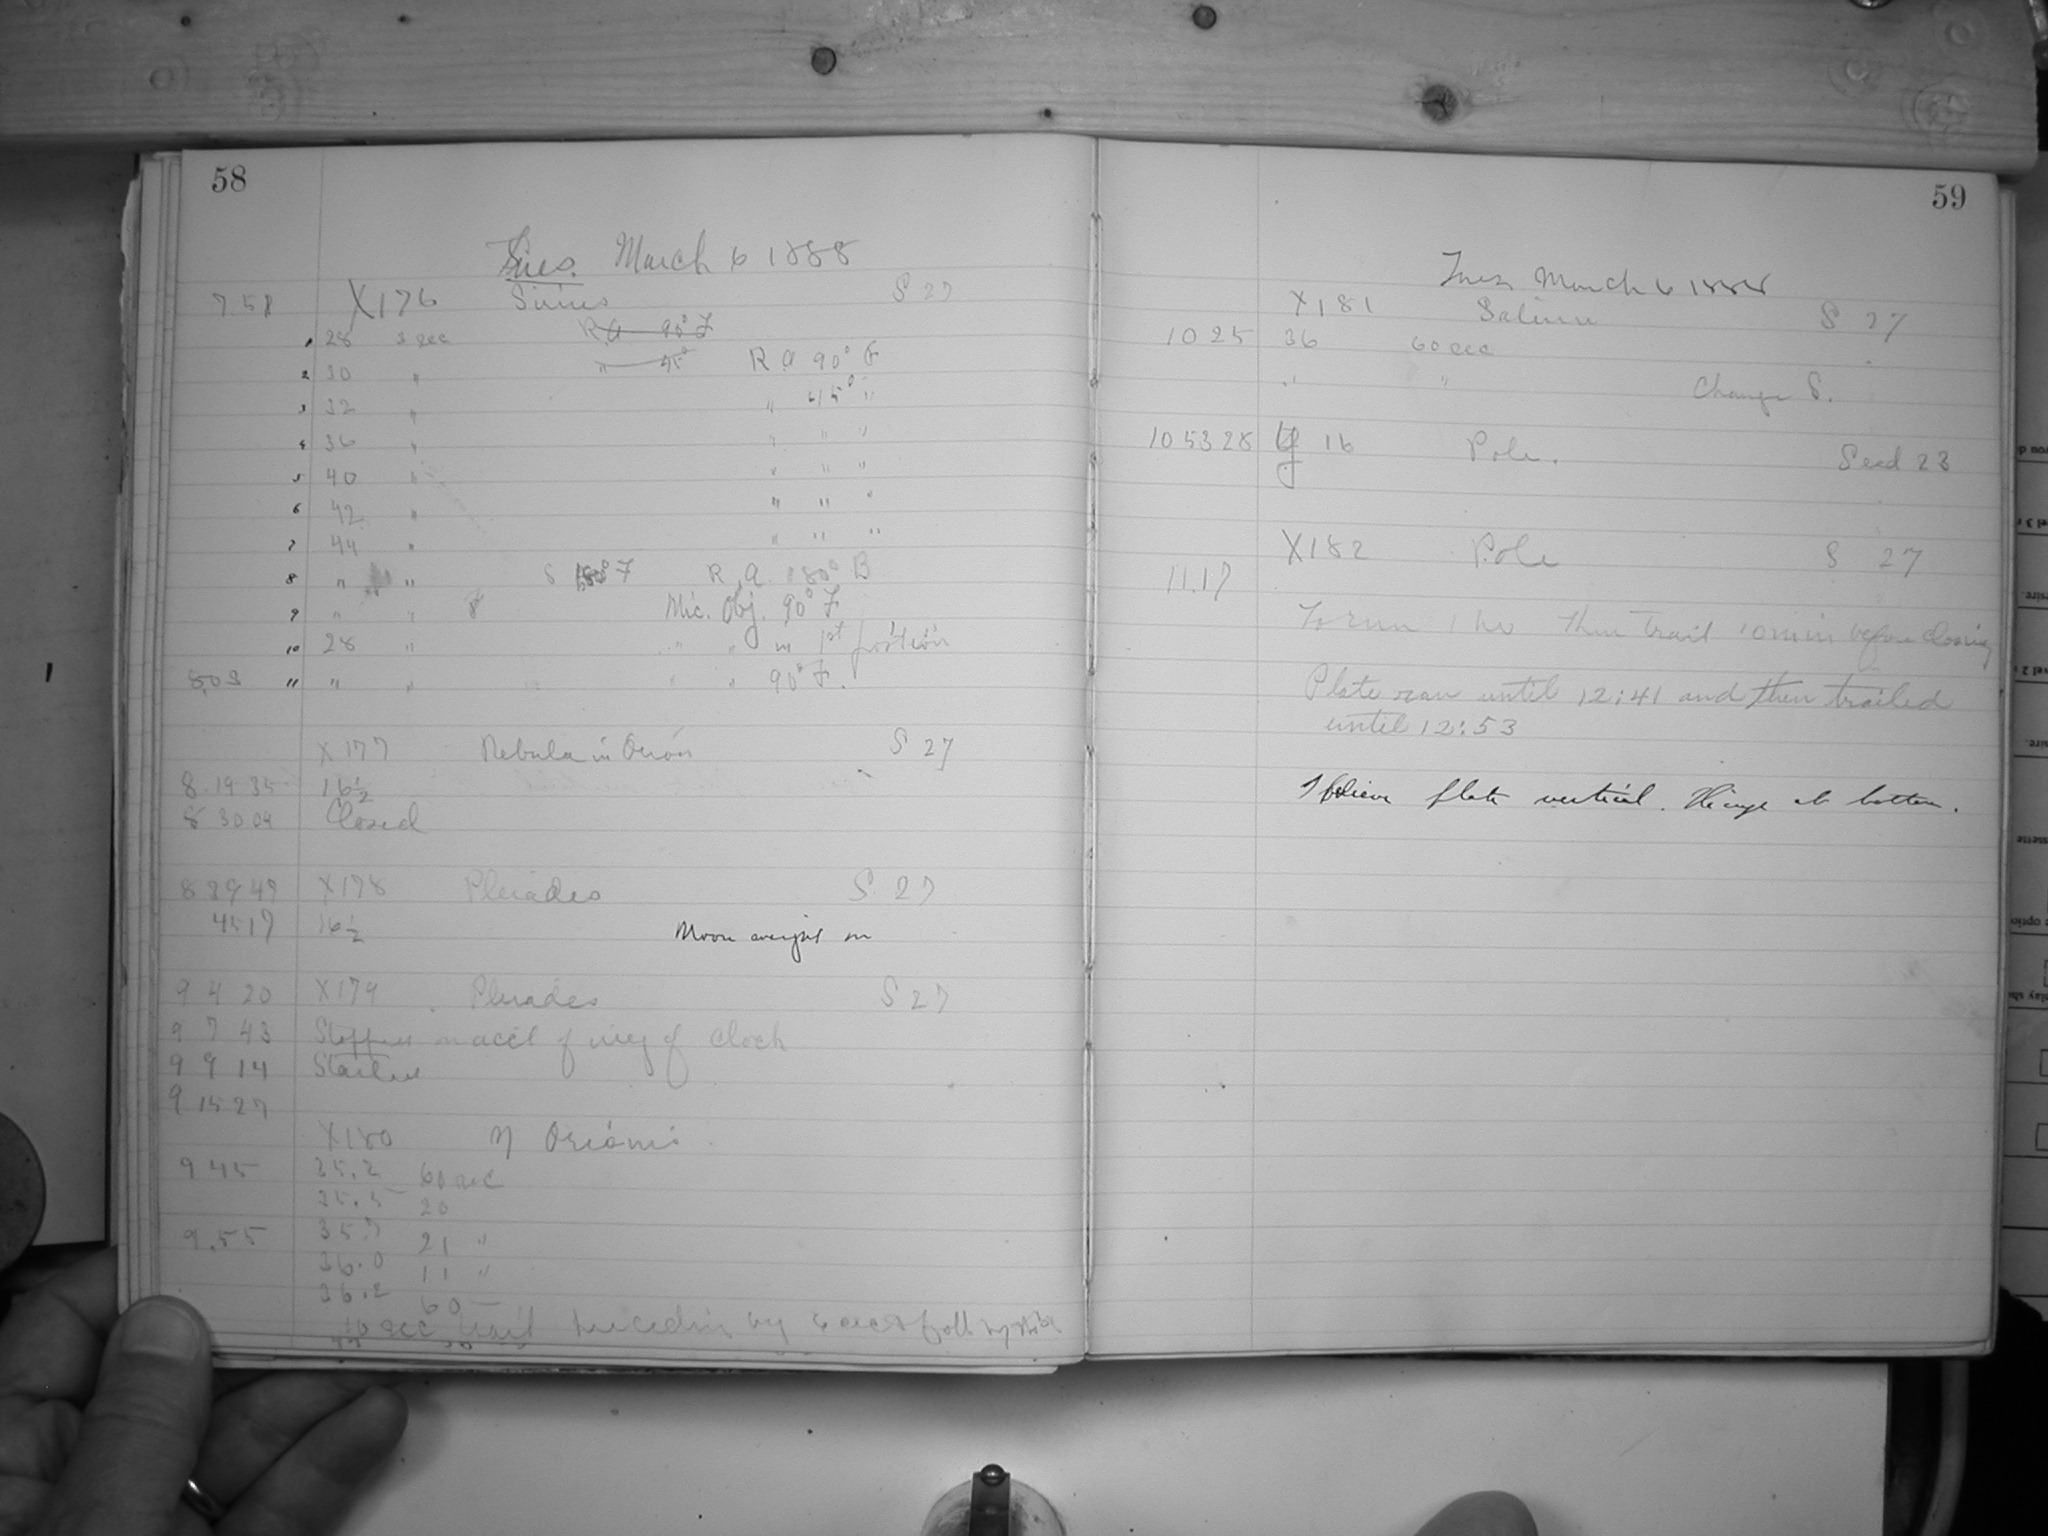 58
Tues. March 6 1888
7.58 X176 Sirius S 27
1 28 3 sec R.a 90° F
2 30 " " 45° R a 90° F
3 32 " " 45° "
4 36 " " " "
5 40 " " " "
6 42 " " " "
7 44 " " " "
8 " " S 180° F R.a. 180° B
9 " " Mic. Obj. 90° F
10 28 " " " in 1st position
8.08 11 " " " " 90° F.
X177 Nebula in Orion S 27
8 19 35 16½
8 30 09 Closed
8 39 49 X178 Pleiades S. 27
45 17 16½ Moon weight on
9 4 20 X179 Pleiades S 27
9 7 43 Stopped on acct of of clock
9 9 14 Started
9 15 27
X180 Orionis
9 45 35.2 60 sec
35.5 20
9.55 35.7 21 "
36.0 11 "
36.2 60
10 sec trail by
59
Tues March 6 1888
X181 S 27
10 25 36 60 sec
" " Change S.
10 53 28 16 Pole. Seed 23
X182 Pole S 27
11.17
To run 1 hr then trail 10 min before closing
Plate ran until 12:41 and then trailed
until 12:53
I believe plate vertical. Hinge at bottom.